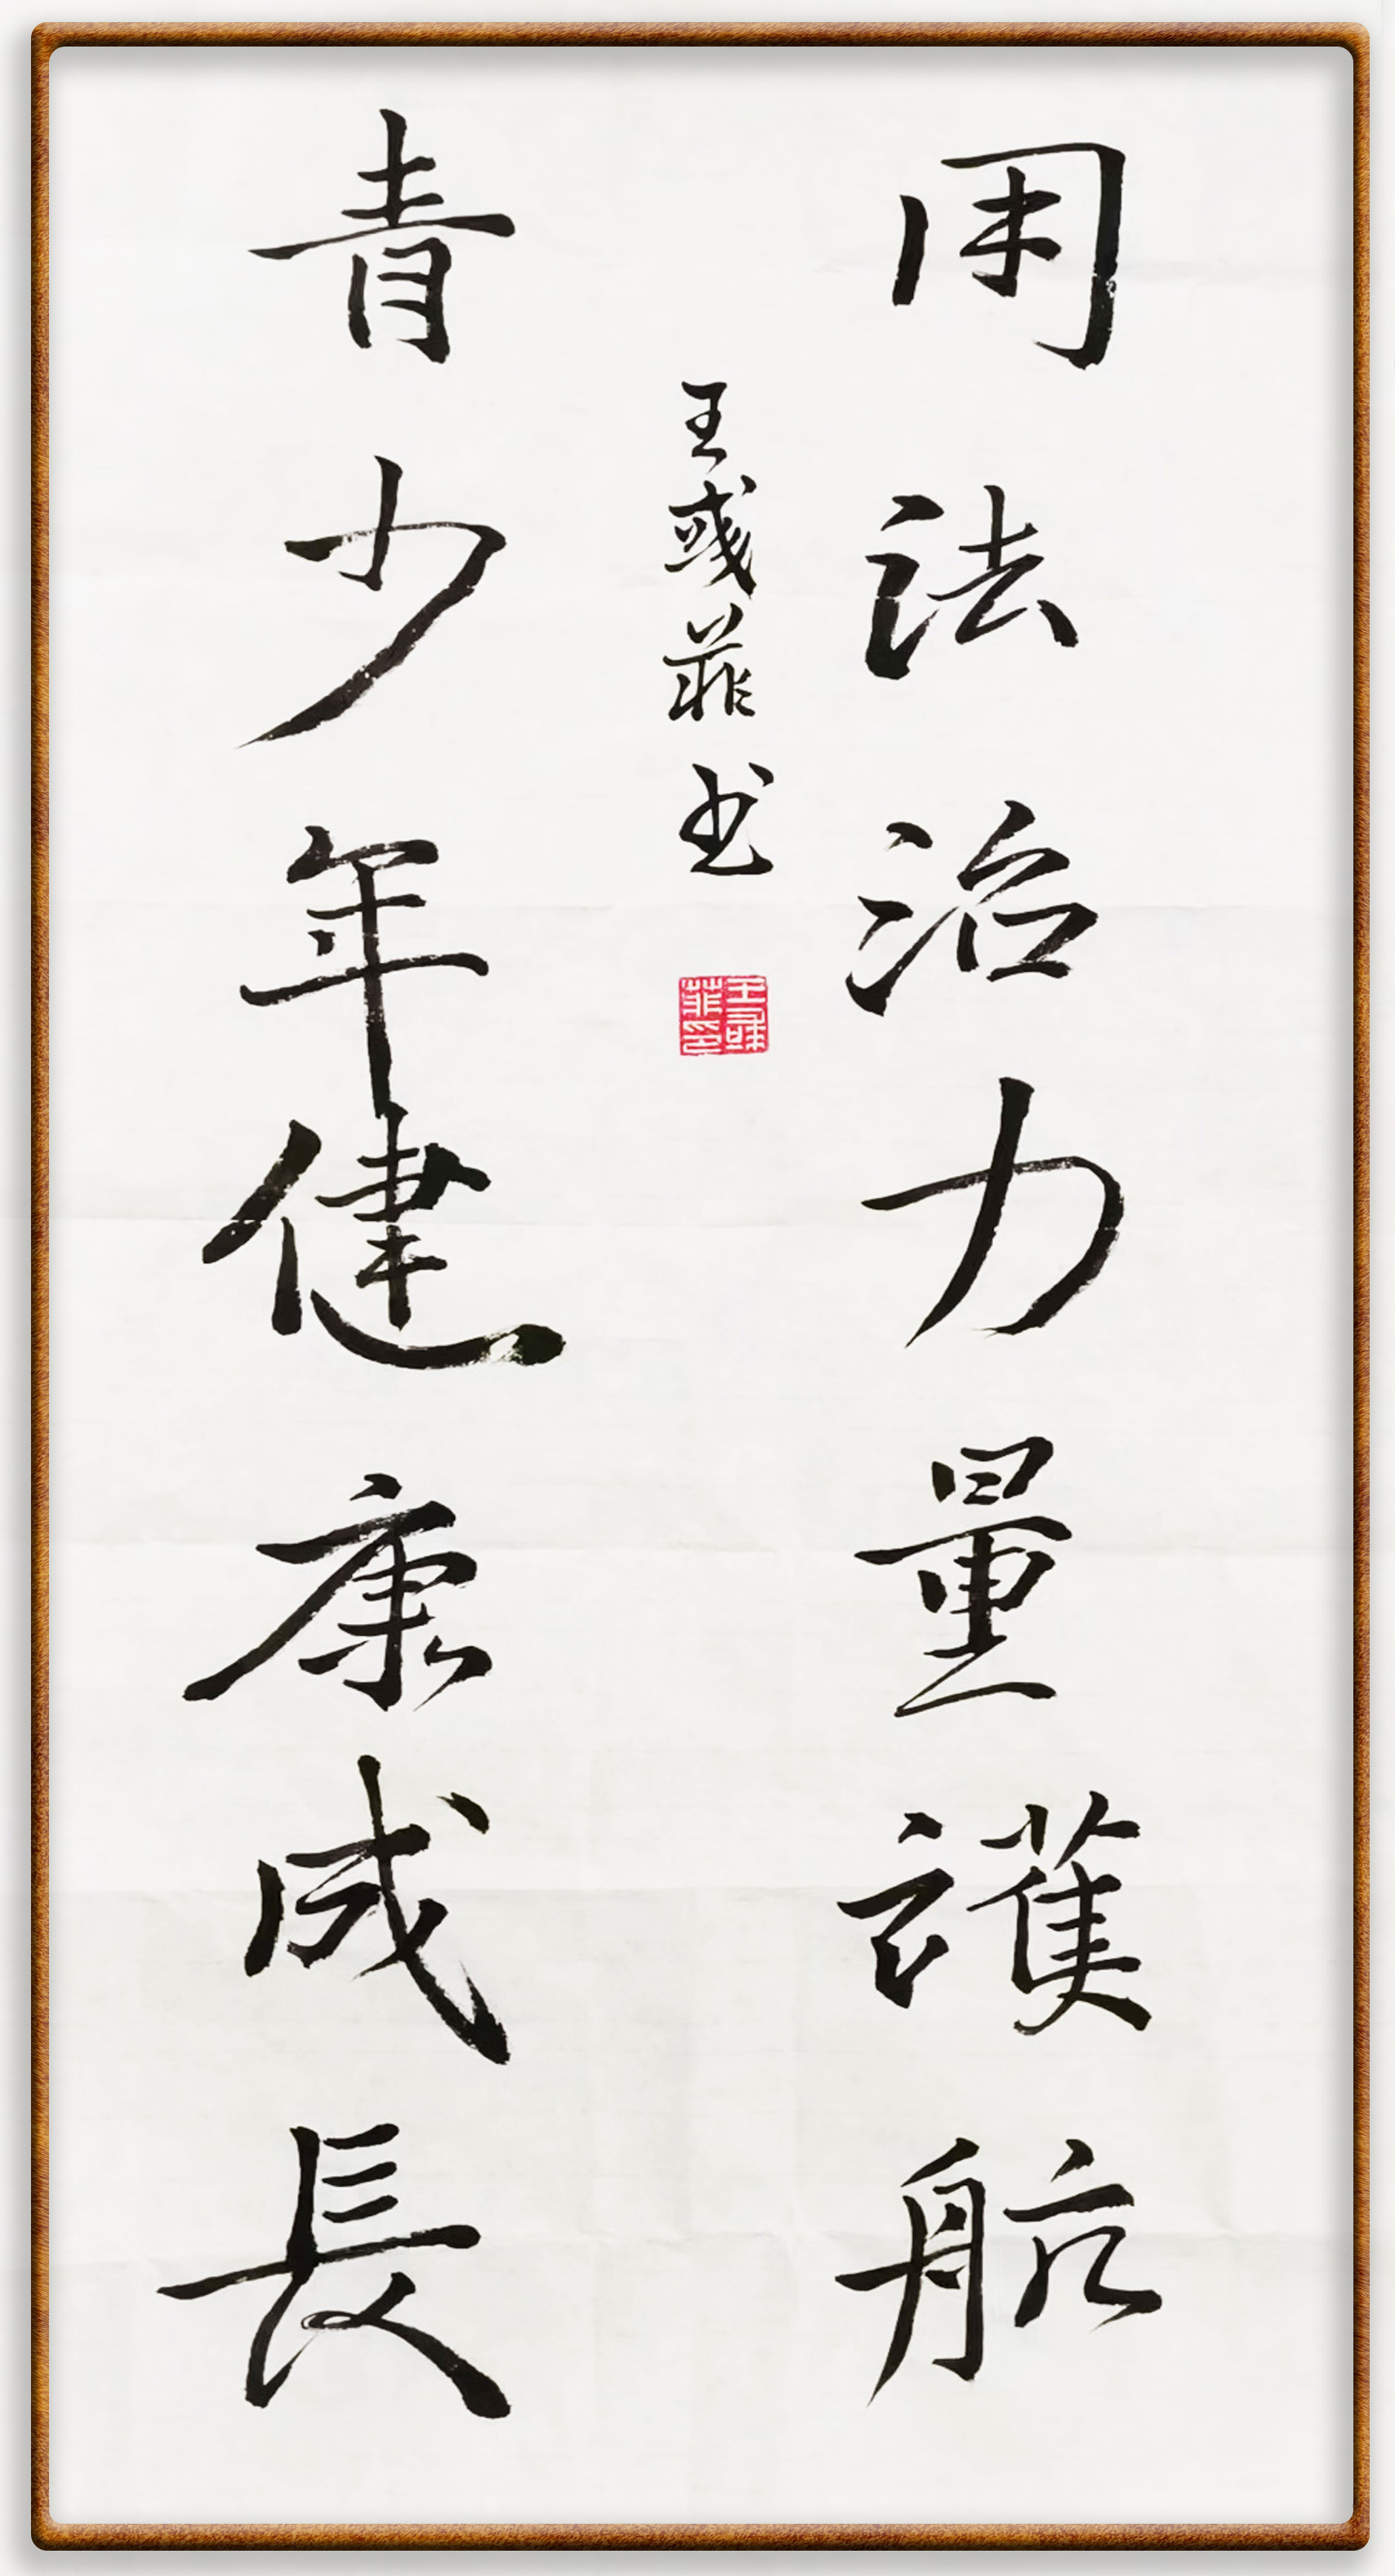 用法治力量護航
青少年健康成長
王彧菲书
王彧菲印